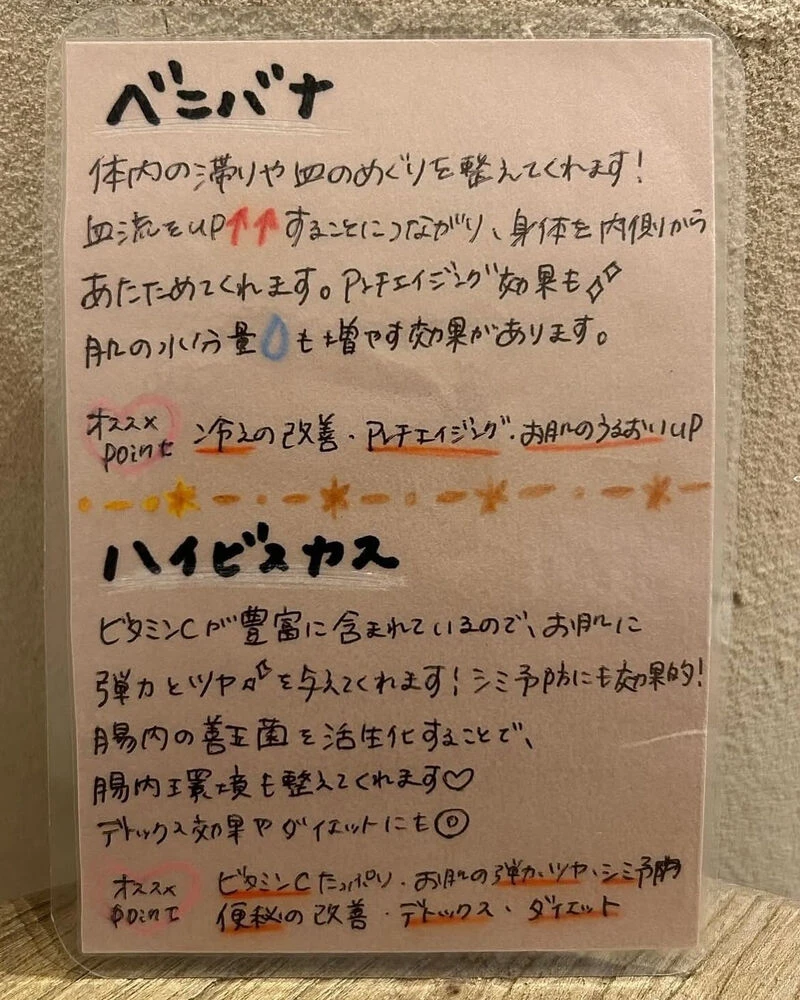 ベニバナ
体内の滞りや血のめぐりを整えてくれます!
血流をUP↑↑することにつながり、身体を内側から
あたためてくれます。アンチエイジング効果も
肌の水分量💧も増やす効果があります。
オススメ
point
冷えの改善・アンチエイジング・お肌のうるおいUP
ハイビスカス
ビタミンCが豊富に含まれているので、お肌に
弾力とツヤを与えてくれます!シミ予防にも効果的!
腸内の善玉菌を活性化することで、
腸内環境も整えてくれます♡
デトックス効果やダイエットにも◎
オススメ
point
ビタミンCたっぷり・お肌の弾力、ツヤ、シミ予防
便秘の改善・デトックス・ダイエット